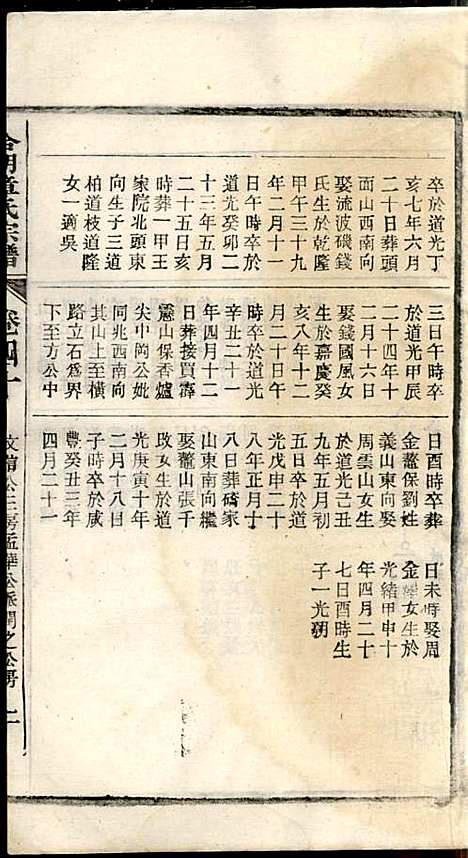 卒於道光丁
亥七年六月
二十日葬頭
面山西南向
娶流波磯錢
氏生於乾隆
甲午三十九
年二月十一
日午時卒於
道光癸卯二
十三年五月
二十五日亥
時葬一甲王
家院北頭東
向生子三道
柏道枝道隆
女一適吳
三日午時卒
於道光甲辰
二十四年十
二月十六日
娶錢國風女
生於嘉慶癸
亥八年十二
月二十日午
時卒於道光
辛丑二十一
年四月十二
日葬接買霹
靂山保香爐
尖中岡公妣
同兆西南向
其山上至橫
路立石爲界
下至方公中
日酉時卒葬
金鰲保劉姓
義山東向娶
周雲山女生
於道光己丑
九年五月初
五日卒於道
光戊申二十
八年正月十
八日葬磚家
山東南向繼
娶鰲山張千
政女生於道
光庚寅十年
二月十八日
子時卒於咸
豐癸丑三年
四月二十一
日未時娶周
金耀女生於
光緒甲申十
年四月二十
七日酉時生
子一光朝
章氏宗譜
卷四十
公三房孟華公派開之公房 二